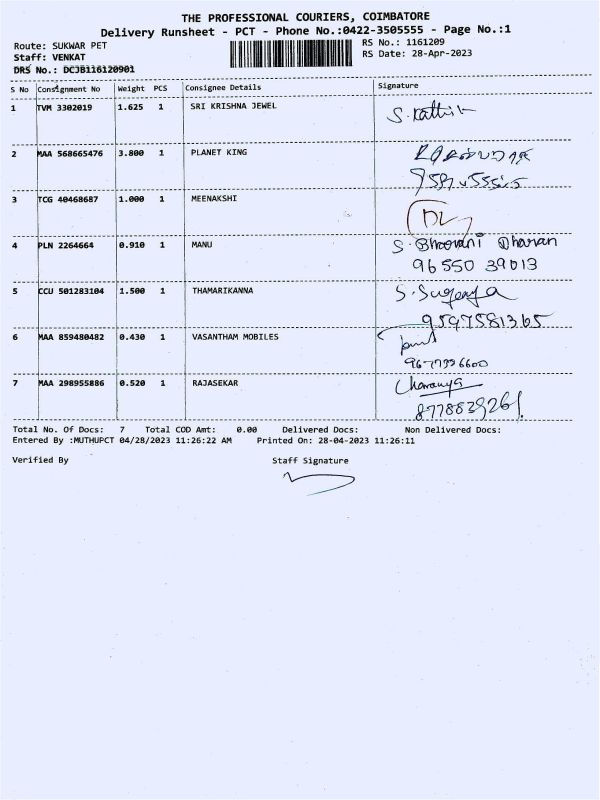 THE PROFESSIONAL COURIERS, COIMBATORE
Delivery Runsheet - PCT - Phone No.:0422-3505555 - Page No.:1
Route: SUKWAR PET RS No.: 1161209
Staff: VENKAT RS Date: 28-Apr-2023
DRS No.: DCJB116120901
S No Consignment No Weight PCS Consignee Details Signature
1 TVM 3302019 1.625 1 SRI KRISHNA JEWEL S. Kathik
2 MAA 568665476 3.800 1 PLANET KING
3 TCG 40468687 1.000 1 MEENAKSHI DL
4 PLN 2264664 0.910 1 MANU S. Bhoorani Dharan
96550 39013
5 CCU 501283104 1.500 1 THAMARIKANNA
9597581365
6 MAA 859480482 0.430 1 VASANTHAM MOBILES
7 MAA 298955886 0.520 1 RAJASEKAR Charanya
8778839261
Total No. Of Docs: 7 Total COD Amt: 0.00 Delivered Docs: Non Delivered Docs:
Entered By :MUTHUPCT 04/28/2023 11:26:22 AM Printed On: 28-04-2023 11:26:11
Verified By Staff Signature